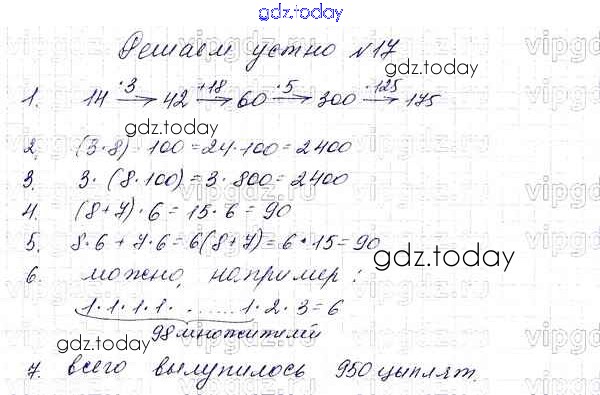 gdz.today
Решаем устно №17
gdz.today
1. 14 ·3→ 42 +18→ 60 ·5→ 300 -125→ 175
gdz.today
2. (3·8)·100=24·100=2400
3. 3·(8·100)=3·800=2400
4. (8+7)·6=15·6=90
5. 8·6+7·6=6(8+7)=6·15=90
gdz.today
6. можно, например:
1·1·1·1·.......1·2·3=6
98 множителей
gdz.today
7. всего вылупилось 950 цыплят.